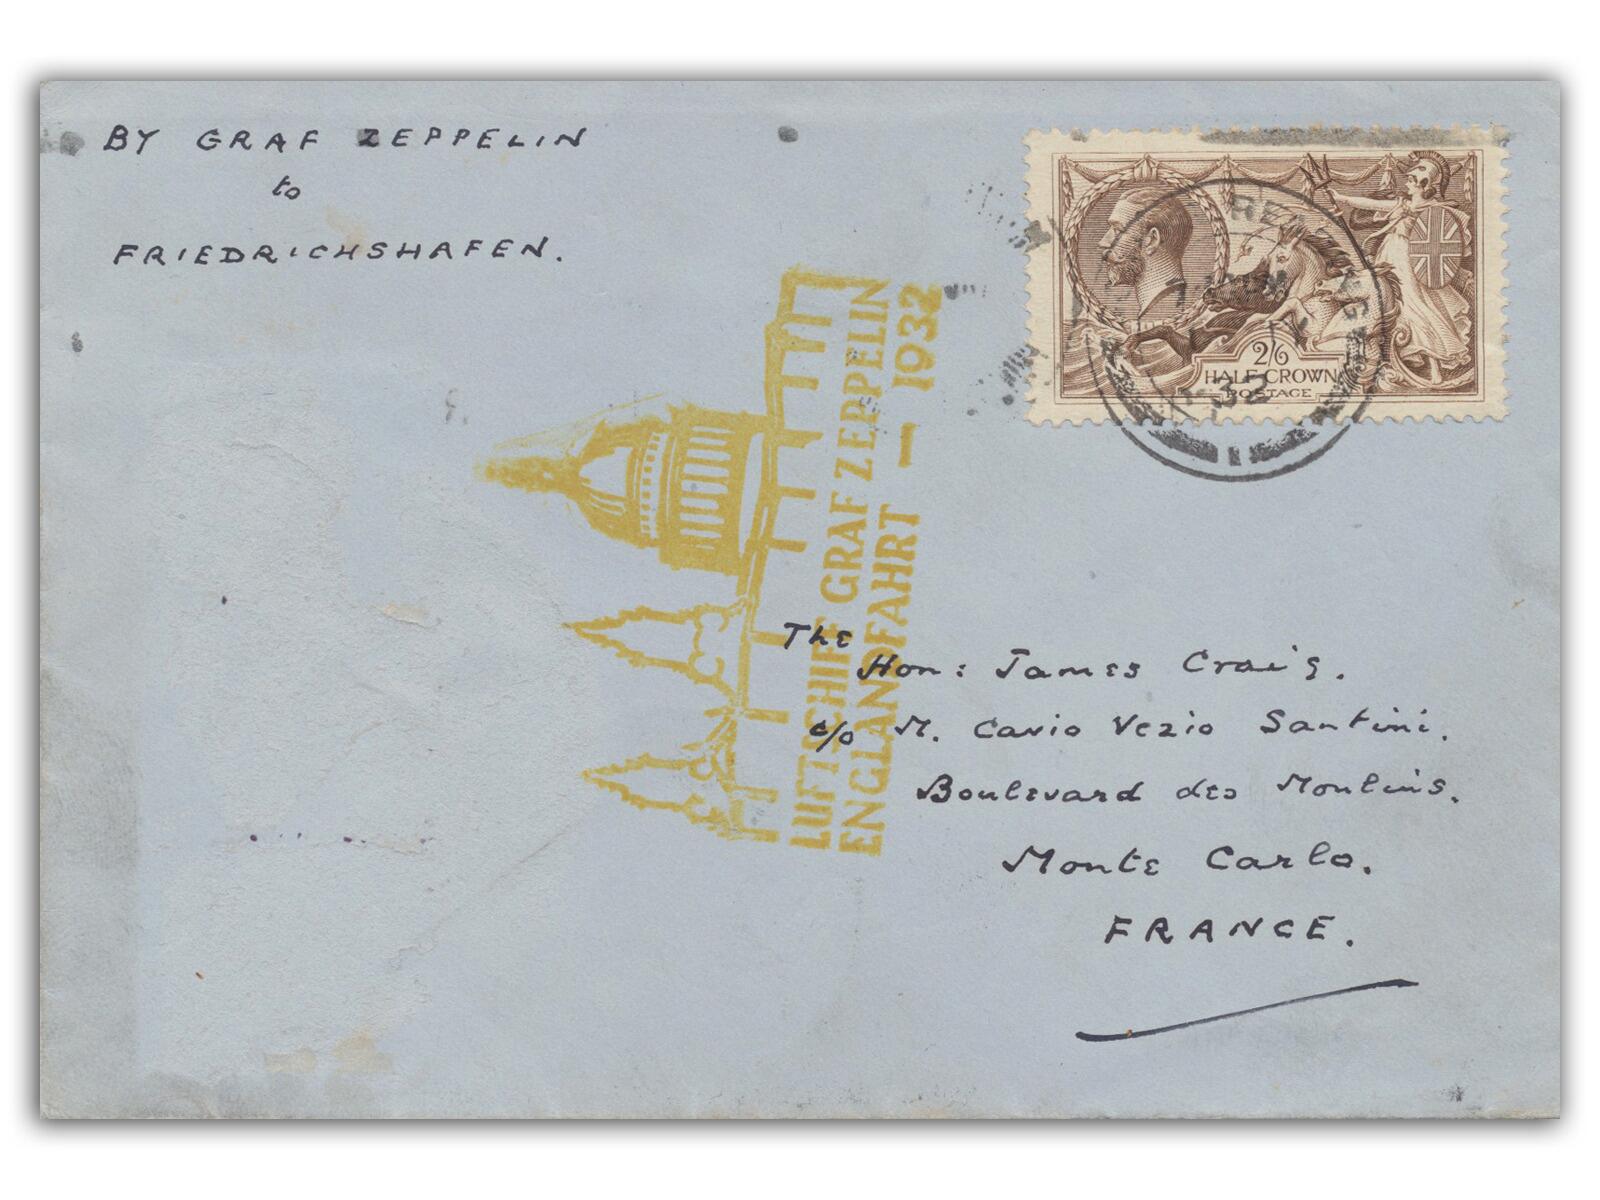 BY GRAF ZEPPELIN
to
FRIEDRICHSHAFEN.
2/6
HALF CROWN
POSTAGE
32
LUFTSCHIFF GRAF ZEPPELIN
ENGLANDFAHRT — 1932
The
Hon: James Craig.
c/o M. Cavio Vezio Santini.
Boulevard des Moulins.
Monte Carlo.
FRANCE.